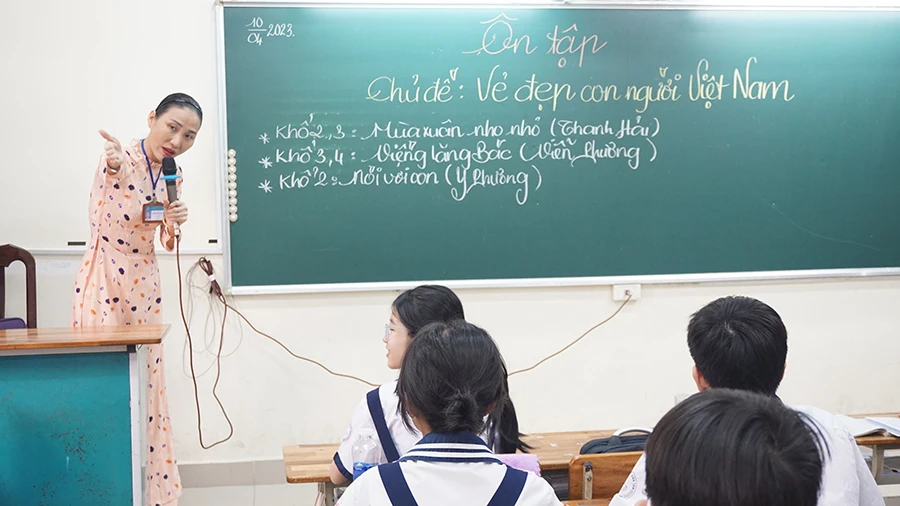 10/04 2023.
Ôn tập
Chủ đề : Vẻ đẹp con người Việt Nam
* Khổ 2, 3 : Mùa xuân nho nhỏ (Thanh Hải)
* Khổ 3, 4 : Viếng lăng Bác (Viễn Phương)
* Khổ 2 : Nói với con (Y Phương)